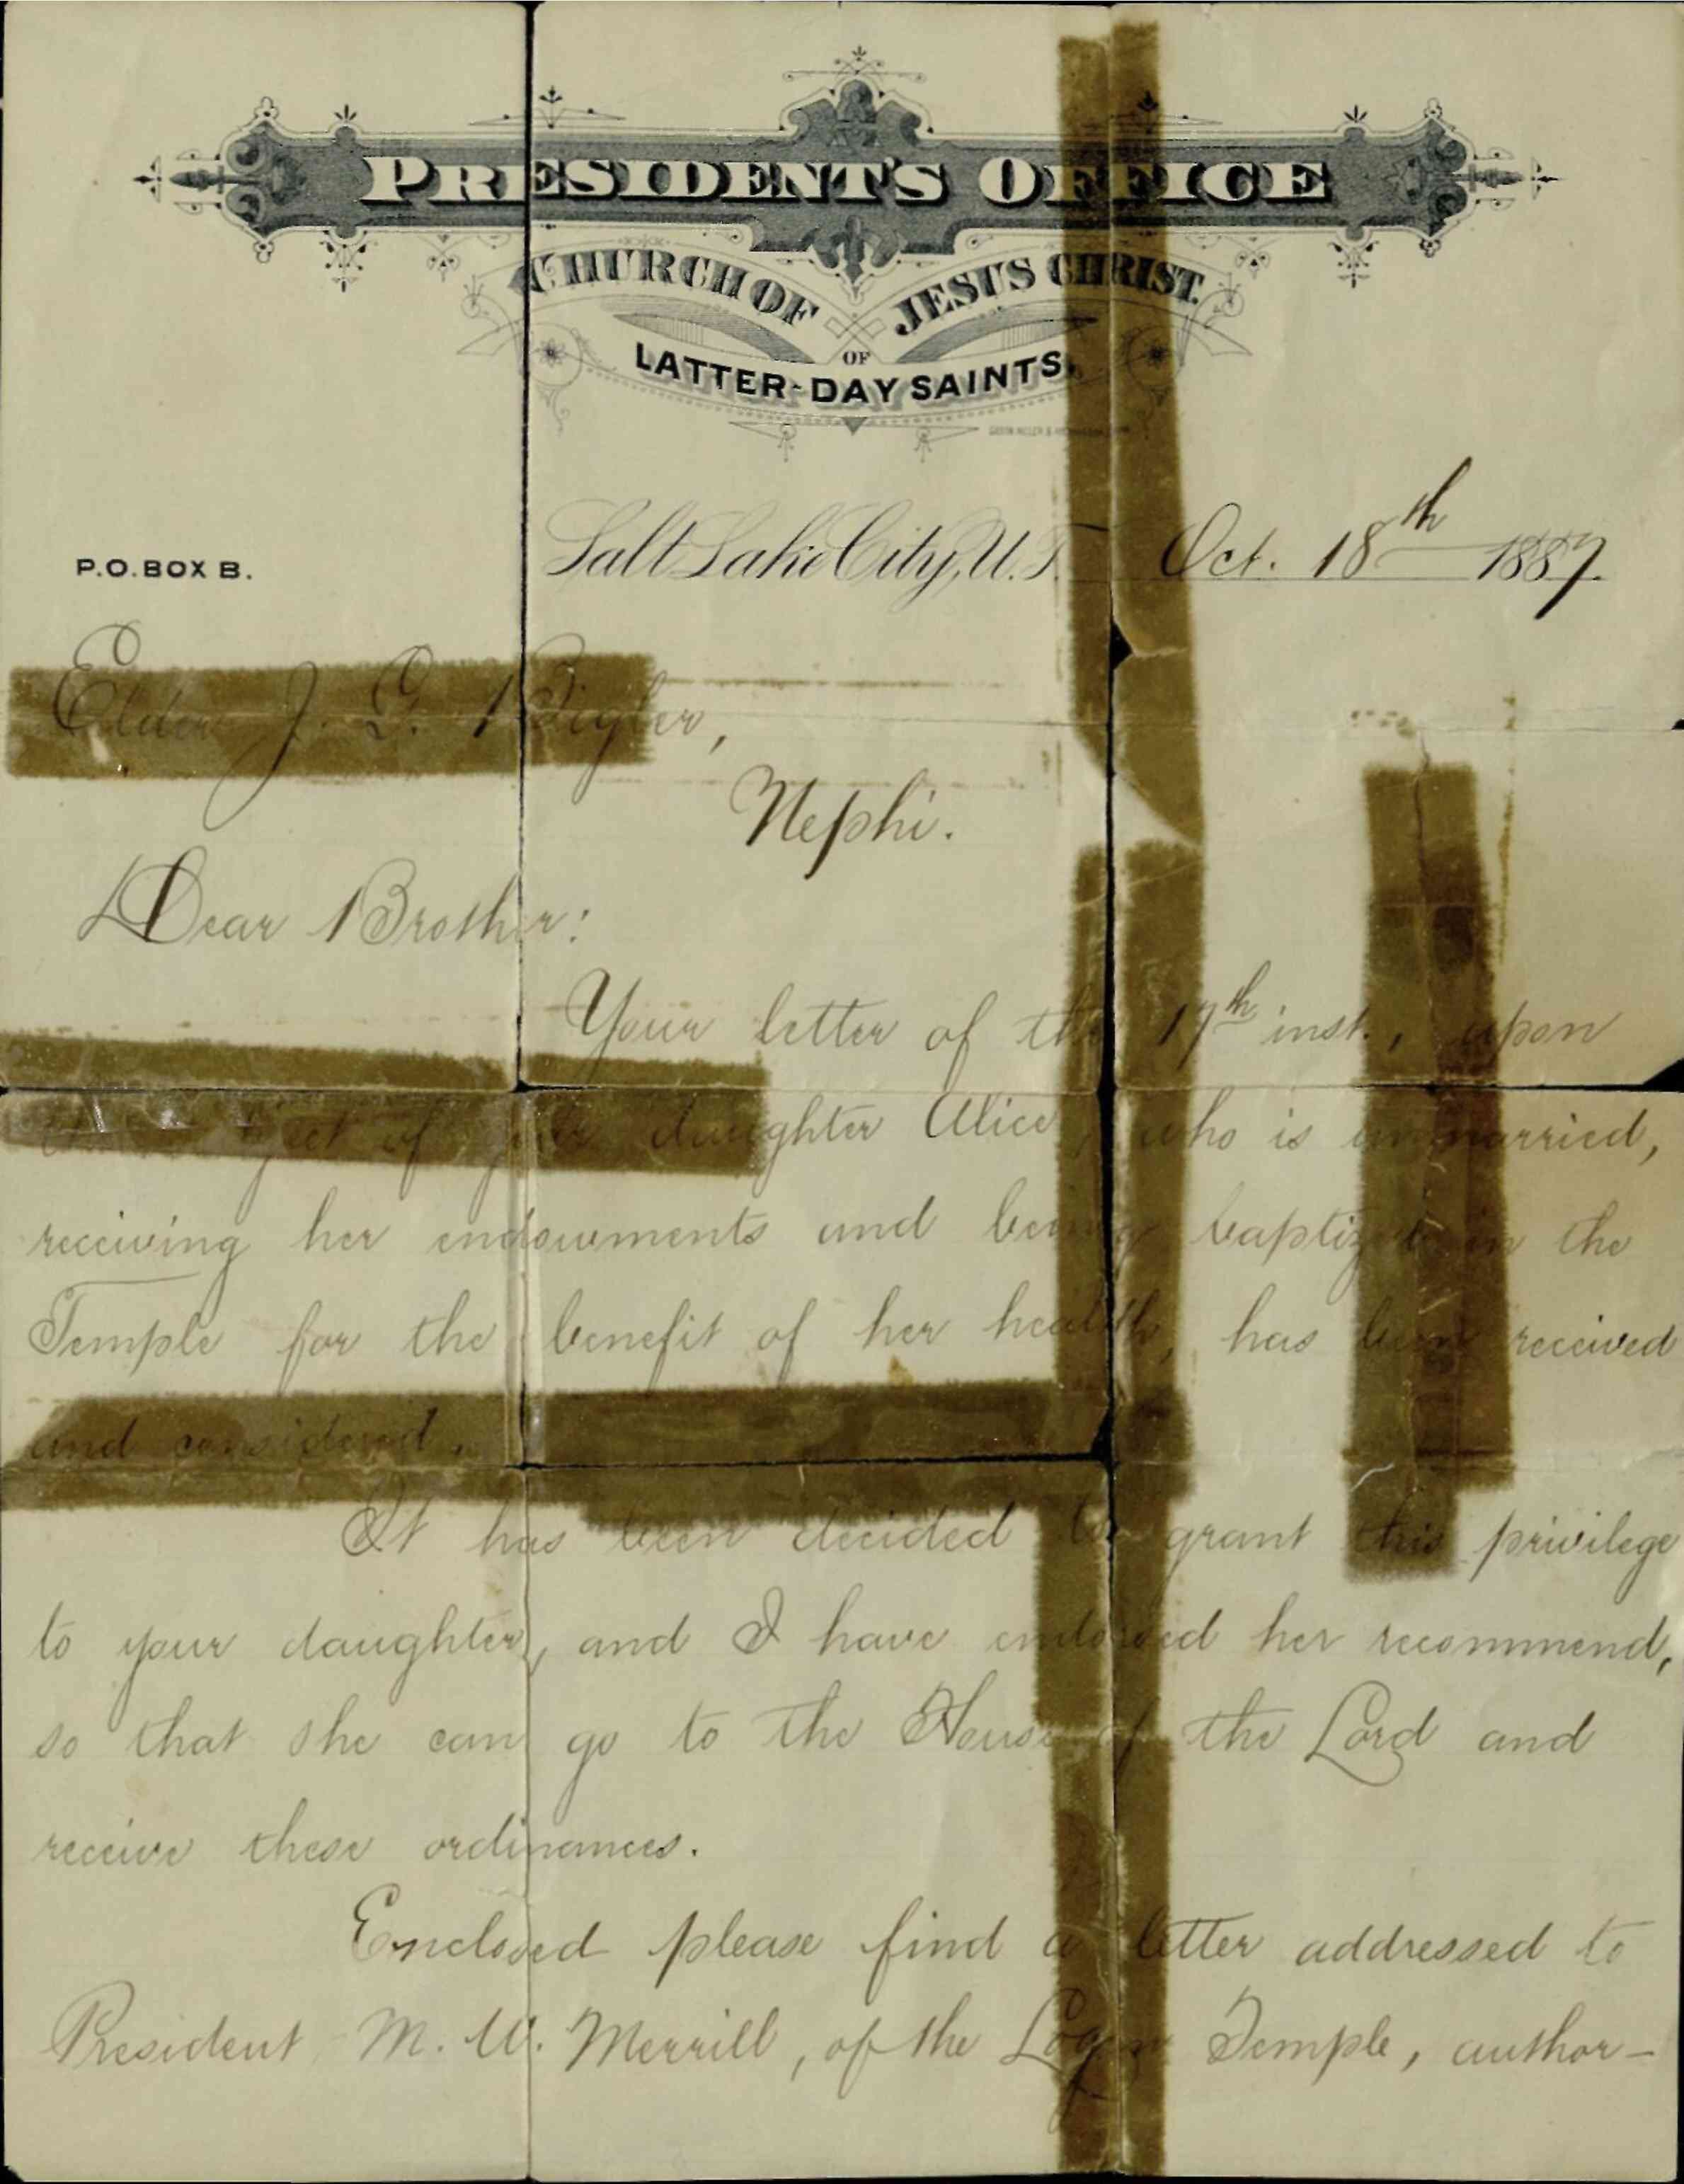 PRESIDENT'S OFFICE
CHURCH OF JESUS CHRIST
OF
LATTER-DAY SAINTS.
P.O. BOX B.
Salt Lake City, U.T. Oct. 18th 1887.
Elder J. G. Bigler,
Nephi.
Dear Brother:
Your letter of the 17th inst., upon
of your daughter Alice, who is unmarried,
receiving her endowments and being baptized in the
Temple for the benefit of her health, has been received
and considered.
It has been decided to grant this privilege
to your daughter, and I have endorsed her recommend,
so that she can go to the House of the Lord and
receive these ordinances.
Enclosed please find a letter addressed to
President M. W. Merrill, of the Logan Temple, author-